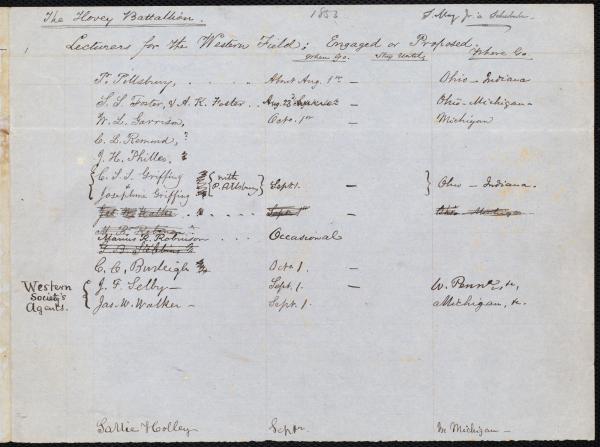 The Hovey Battallion. 1853 S. May Jr's Schedule.
Lecturers for the Western Field; Engaged or Proposed.
When Go. Stay Until; Where Go
P. Pillsbury, . . . . . About Aug. 1st — Ohio – Indiana
S. S. Foster, & A. K. Foster . . Aug. 23d — Ohio. Michigan
W. L. Garrison, Octo. 1st — Michigan
C. L. Remond, ?
J. H. Philleo. ?
C. S. S. Griffing
& Josephine Griffing { with P. Pillsbury } Sept 1. — } Ohio – Indiana.
Jas. W. Walker . . . . Sept 1st — Ohio Michigan
M. R. Robinson
Marius R. Robinson . . . . Occasional
C. C. Burleigh Octo 1. —
Western Society's Agents. { J. F. Selby — Sept. 1. — W. Penna &c,
Jas. W. Walker — Sept. 1. Michigan, &c.
Sallie Holley Sept. In Michigan —